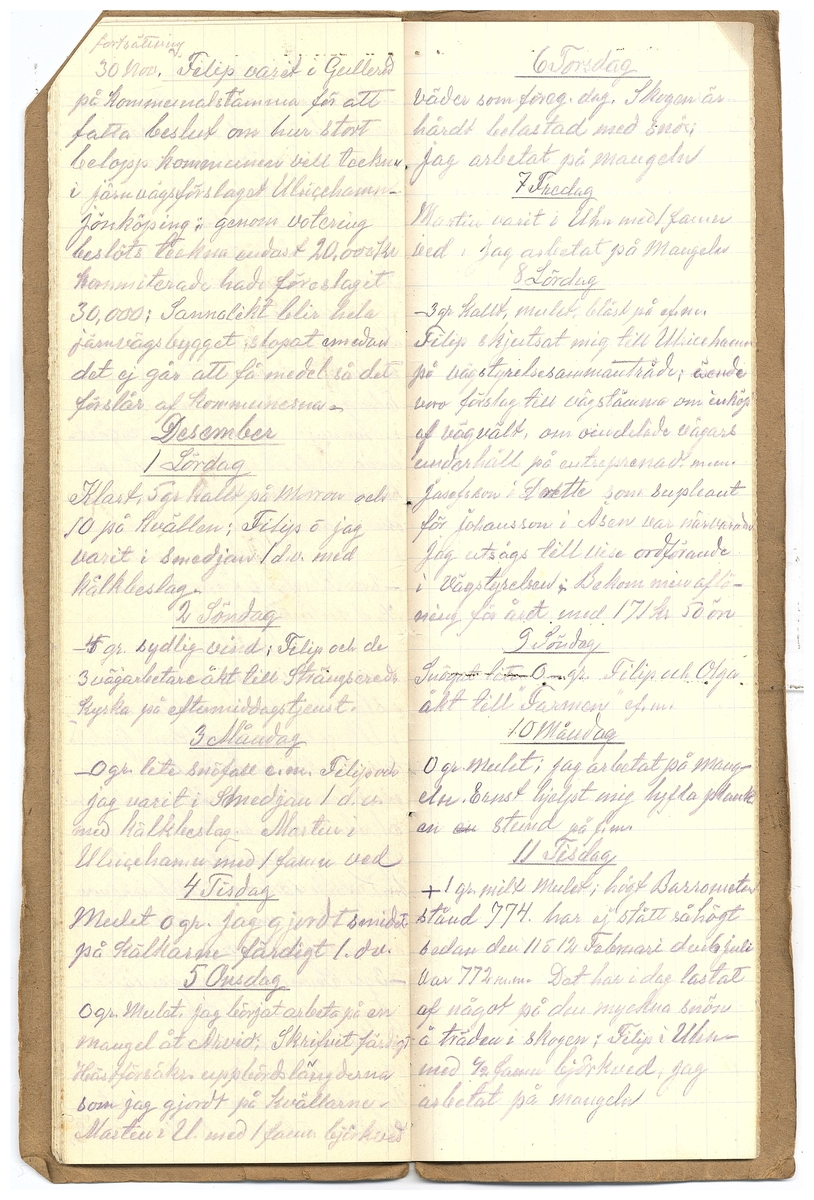 fortsättning
30 Nov. Filip varit i Gullered
på Kommunalstämma för att
fatta beslut om hur stort
belopp Kommunen vill teckna
i järnvägsförslaget Ulricehamn-
Jönköping; genom votering
beslöts teckna endast 20,000 Kr
Kommiterade hade föreslagit
30,000; Sannolikt blir hela
järnvägsbygget stopat emedan
det ej går att få medel så det
förslår af Kommunerna-
Desember
1 Lördag
Klart, 5 gr kallt på Morron och
10 på Kvällen; Filip o jag
varit i smedjan 1 d.v. med
Kälkbeslag.
2 Söndag
-4 gr. sydlig vind; Filip och de
3 vägarbetare åkt till Strängsereds
Kyrka på eftermiddagstjenst.
3 Måndag
-0 gr. lite snöfall e.m. Filip och
jag varit i Smedjan 1 d.v.
med Kälkbeslag. Martin i
Ulricehamn med 1 famn ved
4 Tisdag
Mulet 0 gr. jag gjordt smidet
på Kälkarne färdigt 1. d.v.
5 Onsdag
0 gr. Mulet, jag börjat arbeta på en
mangel åt Arvid; Skrifvit färdigt
Hästförsäkr. uppbördslängderna
som jag gjordt på Kvällarne-
Martin i U. med 1 famn björkved
6 Torsdag
väder som föreg. dag. Skogen är
hårdt belastad med snö;
jag arbetat på mangeln
7 Fredag
Martin varit i Uhn med 1 famn
ved. Jag arbetat på Mangeln
8 Lördag
-3 gr Kallt, mulet, blåst på ef.m.
Filip skjutsat mig till Ulricehamn
på vägstyrelsesammanträde; ärende
voro förslag till vägstämma om inköp
af vägvält, om oindelade vägars
underhåll på entreprenad. m.m.
Josefsson i Grette som supleant
för Johansson i Åsen var närvarande
Jag utsågs till vise ordförande
i Vägstyrelsen; Bekom min aflö-
ning för året med 171 Kr 50 ör
9 Söndag
0 gr. Filip och Olga
åkt till "Farmen" ef.m.
10 Måndag
0 gr. Mulet; jag arbetat på Mang-
eln. Ernst hjelpt mig lyfta plank
en stund på f.m.
11 Tisdag
+1 gr. milt Mulet; högt Barrometer
stånd 774. har ej stått så högt
sedan den 11 o 12 Februari den 6 juli
var 772 m.m. Det har i dag lastat
af något på den myckna snön
å träden i skogen; Filip i Uhn-
med 1/2 famn björkved, jag
arbetat på mangeln